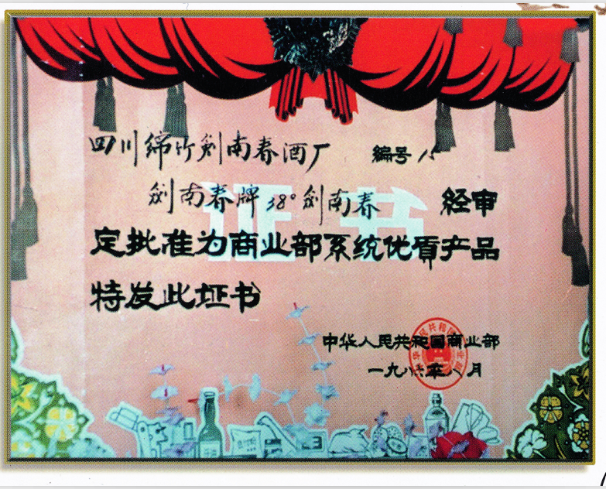 四川绵竹剑南春酒厂 编号15
剑南春牌38°剑南春 经审
定批准为商业部系统优质产品
特发此证书
证书
中华人民共和国商业部
一九八六年八月